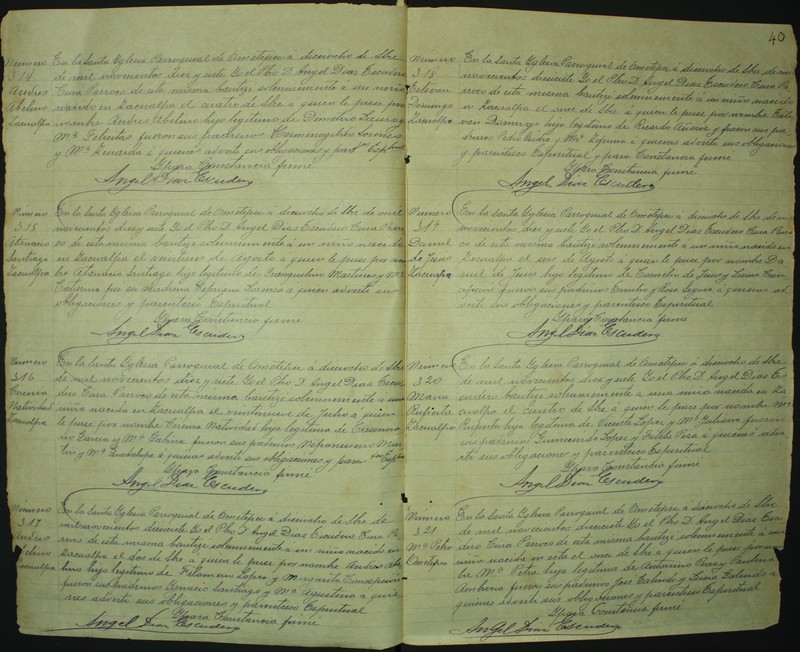 40
Numero
314
Andres
Avelino
Zacualpa
En la Santa Yglecia Parroquial de Ometepec á dieciocho de Sbre
de mil novecientos diez y siete Yo el Pbo D. Angel Dias Escudero
Cura Parroco de esta misma bautize solemnemente á un niño
nacido en Zacualpa el cuatro de Sbre á quien le puse por
nombre Andres Abelino hijo legitimo de Demetrio
Mª Felicitas fueron sus padrinos Hermenegildo
y Mª á quienes advertí sus obligaciones y
Ypara Constancia firmé
Angel Dias Escudero
Numero
315
Atanacio
Santiago
Zacualpa
En la Santa Yglecia Parroquial de Ometepec á dieciocho de Sbre de mil
novecientos diez y siete Yo el Pbo D. Angel Dias Escudero Cura Parro
co de esta misma bautize solemnemente á un niño nacido
en Zacualpa el de Agosto á quien le puse por nom
bre Atanacio Santiago hijo legitimo de Tranquilino Martinez y Mª
Catarina fue su Madrina Cipriana Lorenzo a quien advertí sus
obligaciones y parentesco Espiritual
Ypara Constancia firmé
Angel Dias Escudero
Numero
316
Natividad
Zacualpa
En la Santa Yglecia Parroquial de Ometepec á dieciocho de Sbre
de mil novecientos diez y siete Yo el Pbo D. Angel Dias Escu
dero Cura Parroco de esta misma bautize solemnemente a una
niña nacida en Zacualpa el veintinueve de Julio á quien
le puse por nombre Natividad hija legitima de
Garcia y Mª Sabina fueron sus padrinos Nepomuceno
y Mª Guadalupe á quienes advertí sus obligaciones y
Ypara Constancia firmé
Angel Dias Escudero
Numero
317
Andres
En la Santa Yglecia Parroquial de Ometepec á dieciocho de Sbre de
mil novecientos diecisiete Yo el Pbo D. Angel Dias Escudero Cura Pa
rroco de esta misma bautize solemnemente a un niño nacido en
Zacualpa el dos de Sbre a quien le puse por nombre Andres Abe
lino hijo legitimo de Filomeno Lopez y Margarita Concepcion
fueron sus padrinos Ignacio Santiago y Mª Agustina a quie
nes advertí sus obligaciones y parentesco Espiritual
Ypara Constancia firmé
Angel Dias Escudero
Numero
318
Estevan
Domingo
Zacualpa
En la Santa Yglecia Parroquial de Ometepec á dieciocho de Sbre de mil
novecientos diecisiete Yo el Pbo D. Angel Dias Escudero Cura Pa
rroco de esta misma bautize solemnemente a un niño nacido
en Zacualpa el de Sbre a quien le puse por nombre Este
van Domingo hijo legitimo de Ricardo y fueron sus pa
drinos Pedro y Mª a quienes advertí sus obligaciones
y parentesco Espiritual y para Constancia firmé
Ypara Constancia firmé
Angel Dias Escudero
Numero
319
Daniel
de Jesus
Zacualpa
En la Santa Yglecia Parroquial de Ometepec á dieciocho de Sbre de mil
novecientos diez y siete Yo el Pbo D. Angel Dias Escudero Cura Parro
co de esta misma bautize solemnemente á un niño nacido en
Zacualpa el seis de Agosto á quien le puse por nombre Da
niel de Jesus hijo legitimo de de Jesus y
fueron sus padrinos y Rosa á quienes ad
vertí sus obligaciones y parentesco Espiritual
Ypara Constancia firmé
Angel Dias Escudero
Numero
320
Maria
Ruperta
Zacualpa
En la Santa Yglecia Parroquial de Ometepec á dieciocho de Sbre
de mil novecientos diez y siete Yo el Pbo D. Angel Dias Es
cudero bautize solemnemente a una niña nacida en Za
cualpa el cuatro de Sbre a quien le puse por nombre Mª
Ruperta hija legitima de Vicente Lopez y Mª Juliana fueron
sus padrinos Gumercindo Lopez y Fidela a quienes adver
tí sus obligaciones y parentesco Espiritual
Ypara Constancia firmé
Angel Dias Escudero
Numero
321
Mª Petra
Ometepec
En la Santa Yglecia Parroquial de Ometepec á dieciocho de Sbre
de mil novecientos diecisiete Yo el Pbo D. Angel Dias Escu
dero Cura Parroco de esta misma bautize solemnemente á una
niña nacida en esta el once de Sbre a quien le puse por nom
bre Mª Petra hija legitima de Antonino Perez y Paulina
fueron sus padrinos Jose y a
quienes advertí sus obligaciones y parentesco Espiritual
Ypara Constancia firmé
Angel Dias Escudero